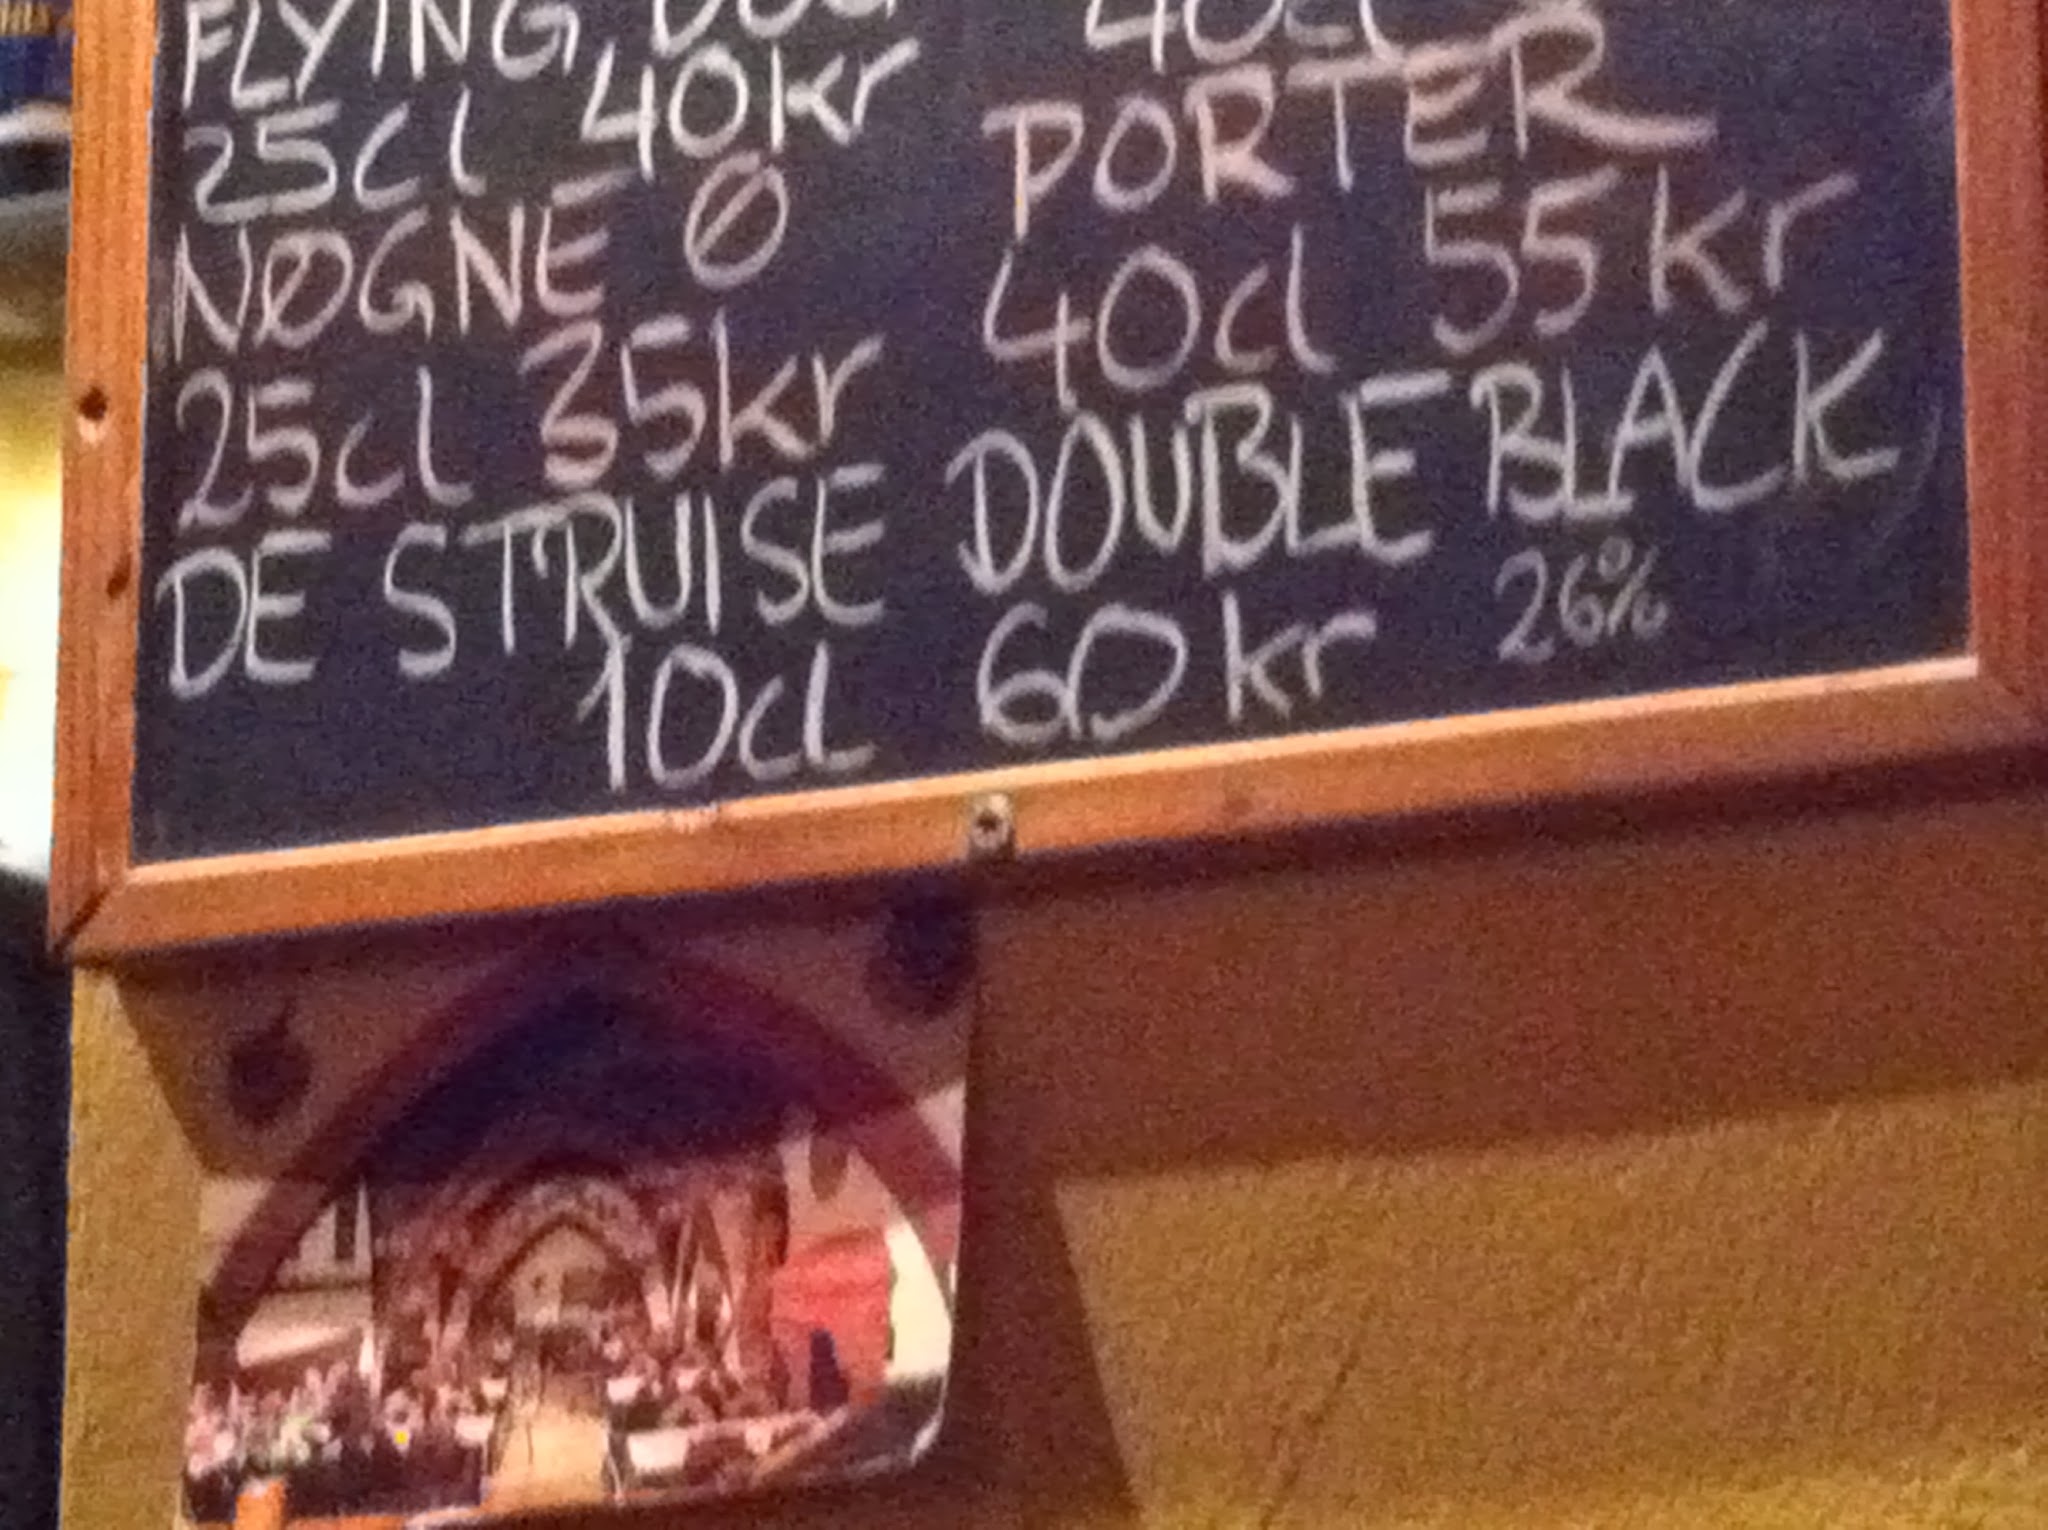 FLYING DOG 40cl
25cl 40kr PORTER
NØGNE Ø 40cl 55kr
25cl 35kr
DE STRUISE DOUBLE BLACK
10cl 60kr 26%